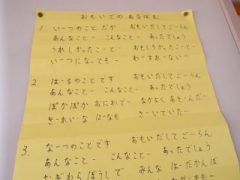 おもいでのあるばむ
1 い―つのことだか おもいだしてご―らん
あんなこと― こんなこと― あったでしょう
うれしかったこ―と おもしろかったこ―と
い―つになっても― わ―すれな―い
2 は―るのことです おもいだしてご―らん
あんなこと― こんなこと― あったでしょう
ぽかぽか おにわで― なかよく あそんだ―
き―れいな は―なも さ―いていた―
3. な―つのことです おもいだしてご―らん
あんなこと― こんなこと― あったでしょう
むぎわらぼうしで みんな は―だかんぼ